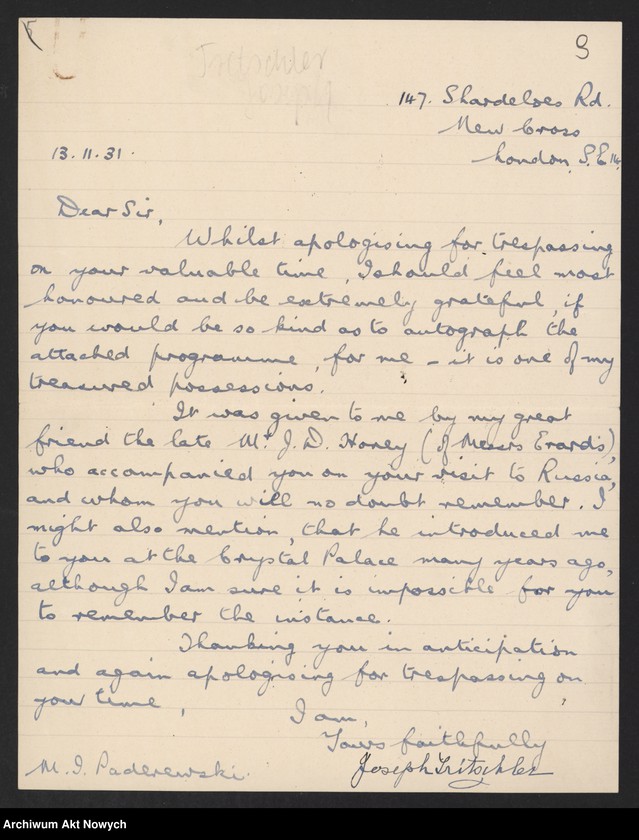 5
9
Tritschler
Joseph
147. Shardeloes Rd.
New Cross
London, S.E 14.
13.11.31.
Dear Sir,
Whilst apologising for trespassing
on your valuable time, I should feel most
honoured and be extremely grateful, if
you would be so kind as to autograph the
attached programme, for me – it is one of my
treasured possessions.
It was given to me by my great
friend the late Mr J. D. Honey (of Messrs Erards),
who accompanied you on your visit to Russia,
and whom you will no doubt remember. I
might also mention, that he introduced me
to you at the Crystal Palace many years ago,
although I am sure it is impossible for you
to remember the instance.
Thanking you in anticipation
and again apologising for trespassing on
your time,
I am,
Yours faithfully
Joseph Tritschler
M. I. Paderewski.
Archiwum Akt Nowych